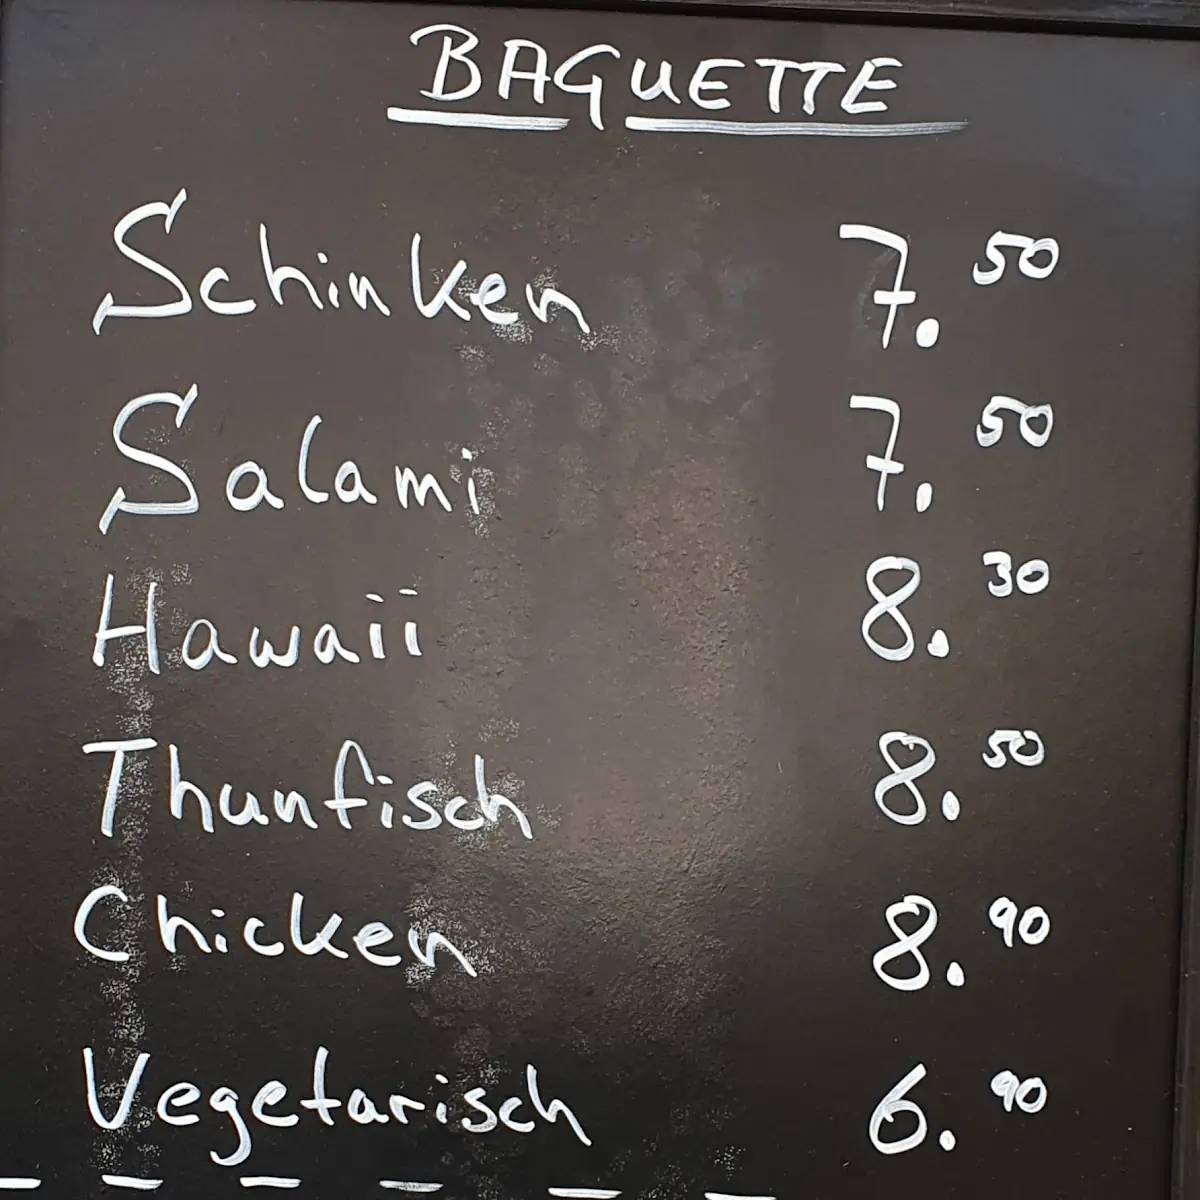 BAGUETTE
Schinken 7.50
Salami 7.50
Hawaii 8.30
Thunfisch 8.50
Chicken 8.90
Vegetarisch 6.90